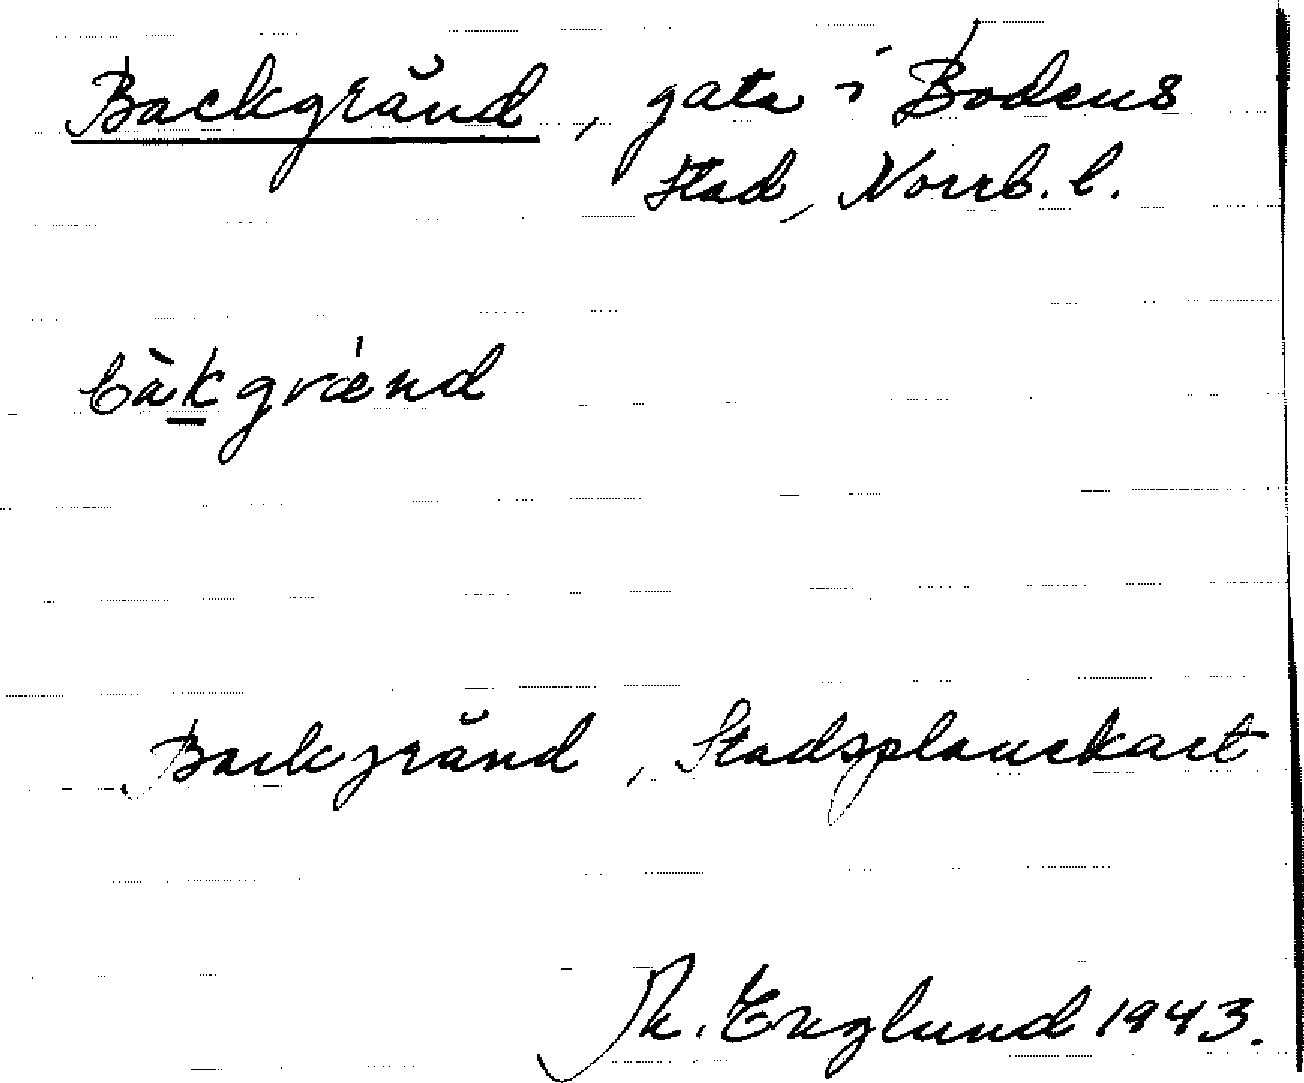 Backgränd, gata i Bodens
stad, Norrb. l.
bàkgrænd
Backgränd, Stadsplanekart
R. Englund 1943.